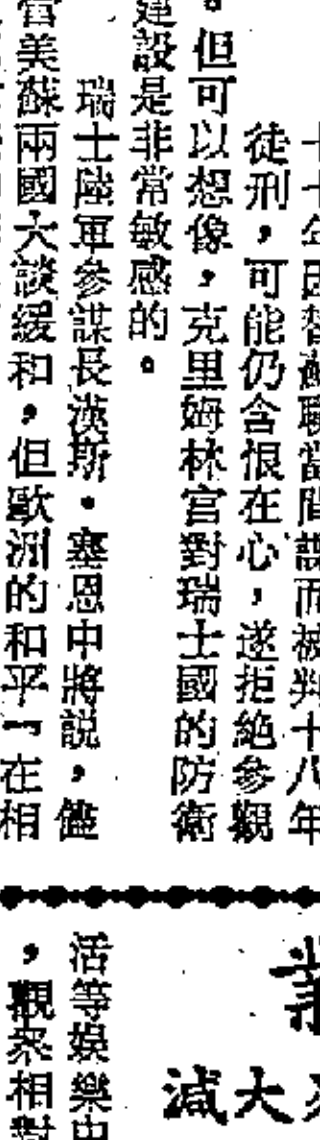 年因替蘇聯當間諜而被判十八年
徒刑，可能仍含恨在心，遂拒絶參觀
。但可以想像，克里姆林宮對瑞士國的防衛
建設是非常敏感的。
瑞士陸軍參謀長漢斯・塞恩中將説，儘
當美蘇兩國大談緩和，但歐洲的和平「在相
大減
活等娛樂
，觀眾相對